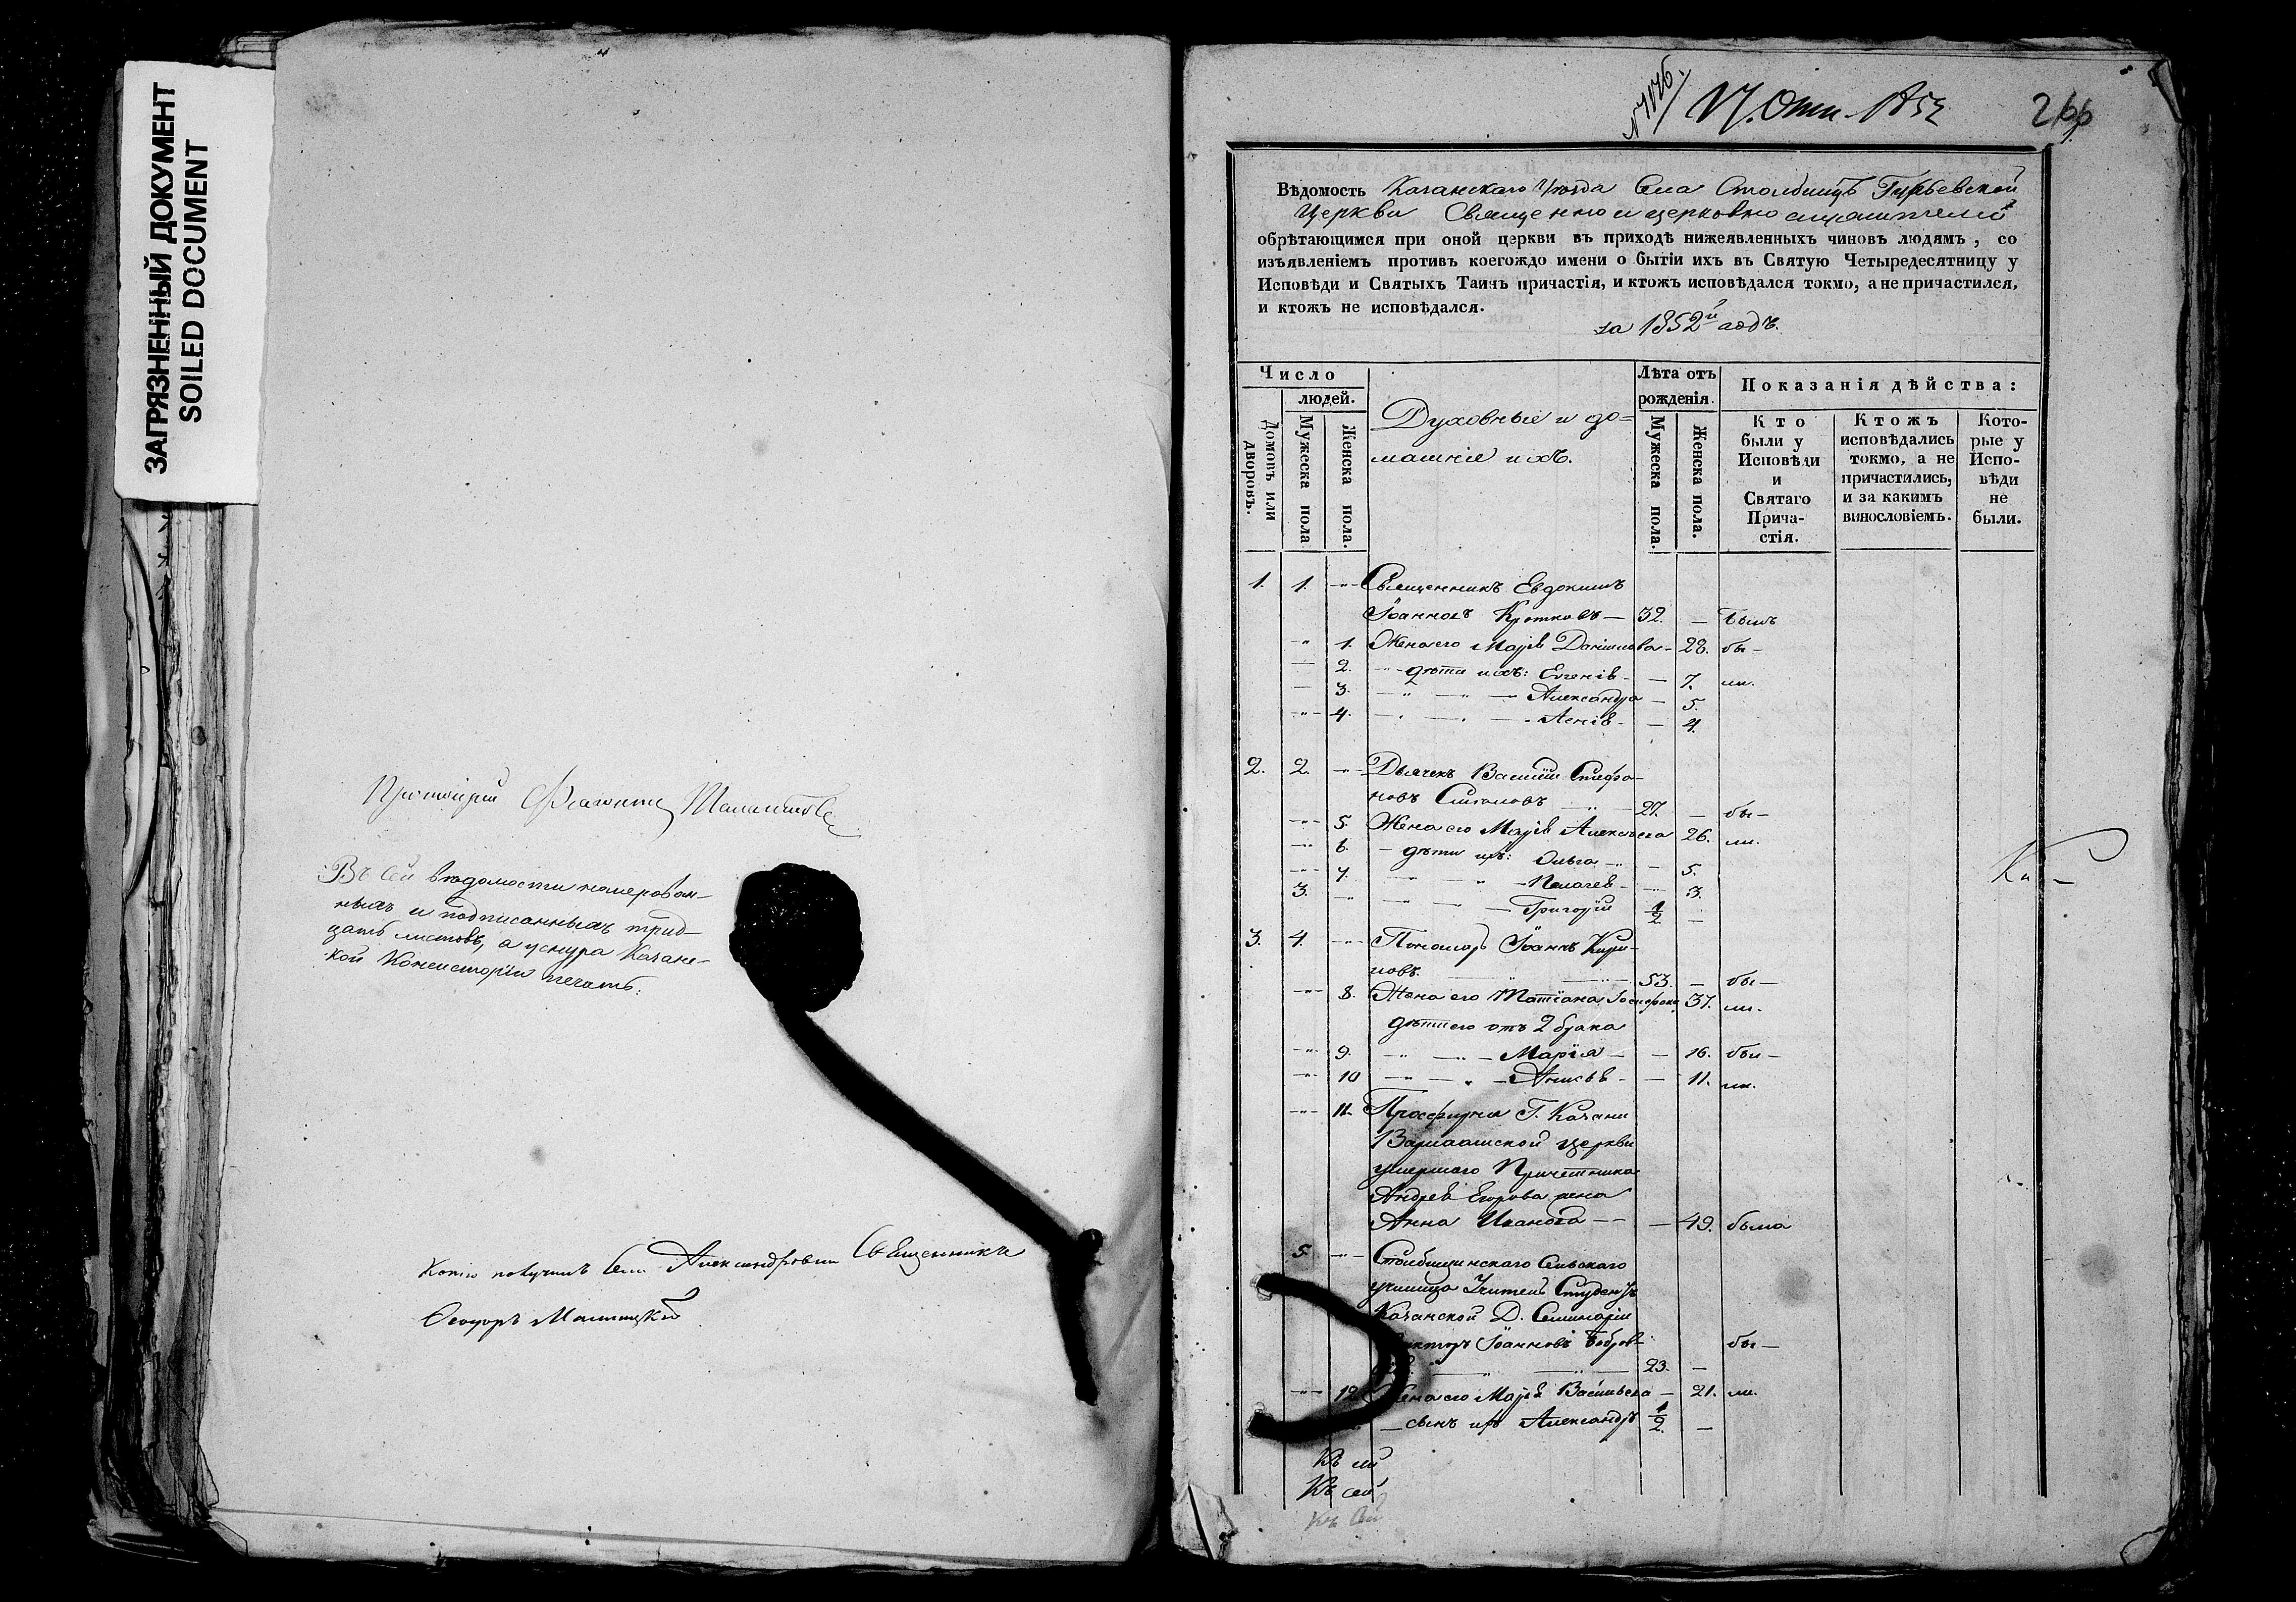 ЗАГРЯЗНЕННЫЙ ДОКУМЕНТ
SOILED DOCUMENT
Протоіерей
Въ сей вѣдомости номерован-
ныхъ и подписанныхъ трид-
цать листовъ, а уснура Казанс-
кой Консисторіи печать.
Копію получилъ Села Александровки Священникъ
Ѳеодоръ
266
Вѣдомость Казанскаго Уѣзда Села Столбищъ Гурьевской
Церкви Священно и церковно служителей
обрѣтающимся при оной церкви въ приходѣ нижеявленныхъ чиновъ людямъ, со
изъявленіемъ противъ коегождо имени о бытіи ихъ въ Святую Четыредесятницу у
Исповѣди и Святыхъ Таинъ причастія, и ктожъ исповѣдался токмо, а не причастился,
и ктожъ не исповѣдался.
за 1852й годъ.
Число
людей.
Домовъ или дворовъ.
Мужеска пола
Женска пола.
Духовные и до=
машніе ихъ.
Лѣта отъ
рожденія.
Мужеска пола.
Женска пола.
Показанія дѣйства:
Кто
были у
Исповѣди
и
Святаго
Прича-
стія.
Ктожъ
исповѣдались
токмо, а не
причастились,
и за какимъ
винословіемъ.
Кото-
рые у
Испо-
вѣди
не
были.
1. 1. Священникъ Евдокимъ
Іоанновъ Кротковъ 32. былъ
1. Жена его Марія Даніилова 28. бы-
2. дѣти ихъ: Евгенія 7. ли.
3. Александра 5.
4. 4.
2. 2. Дьячекъ Василій Стефа-
новъ 27. бы-
5. Жена его Марія Алексѣева 26. ли.
6. дѣти ихъ: Ольга 5.
7. Пелагея 3.
3. Григорій 1/2
3. 4. Пономарь Іоаннъ Кири-
ловъ. 53. бы-
8. Жена его Татіана 37. ли.
дѣти его отъ 2 брака
9. Марія 16. бы-
10 Анисья 11. ли.
11. Просфирня Г. Казани
Варлаамской церкви
умершаго Причетника
Андрея Егорова жена
Анна Иванова 49. была
5. Столбищинскаго Сельскаго
училища Учитель Студентъ
Казанской Д. Семинаріи
Іоанновъ Бобров- бы-
23.
12. Жена его Марія Васильева 21. ли.
сынъ ихъ Александръ 1/2.
Къ сей
Къ сей
Къ сей